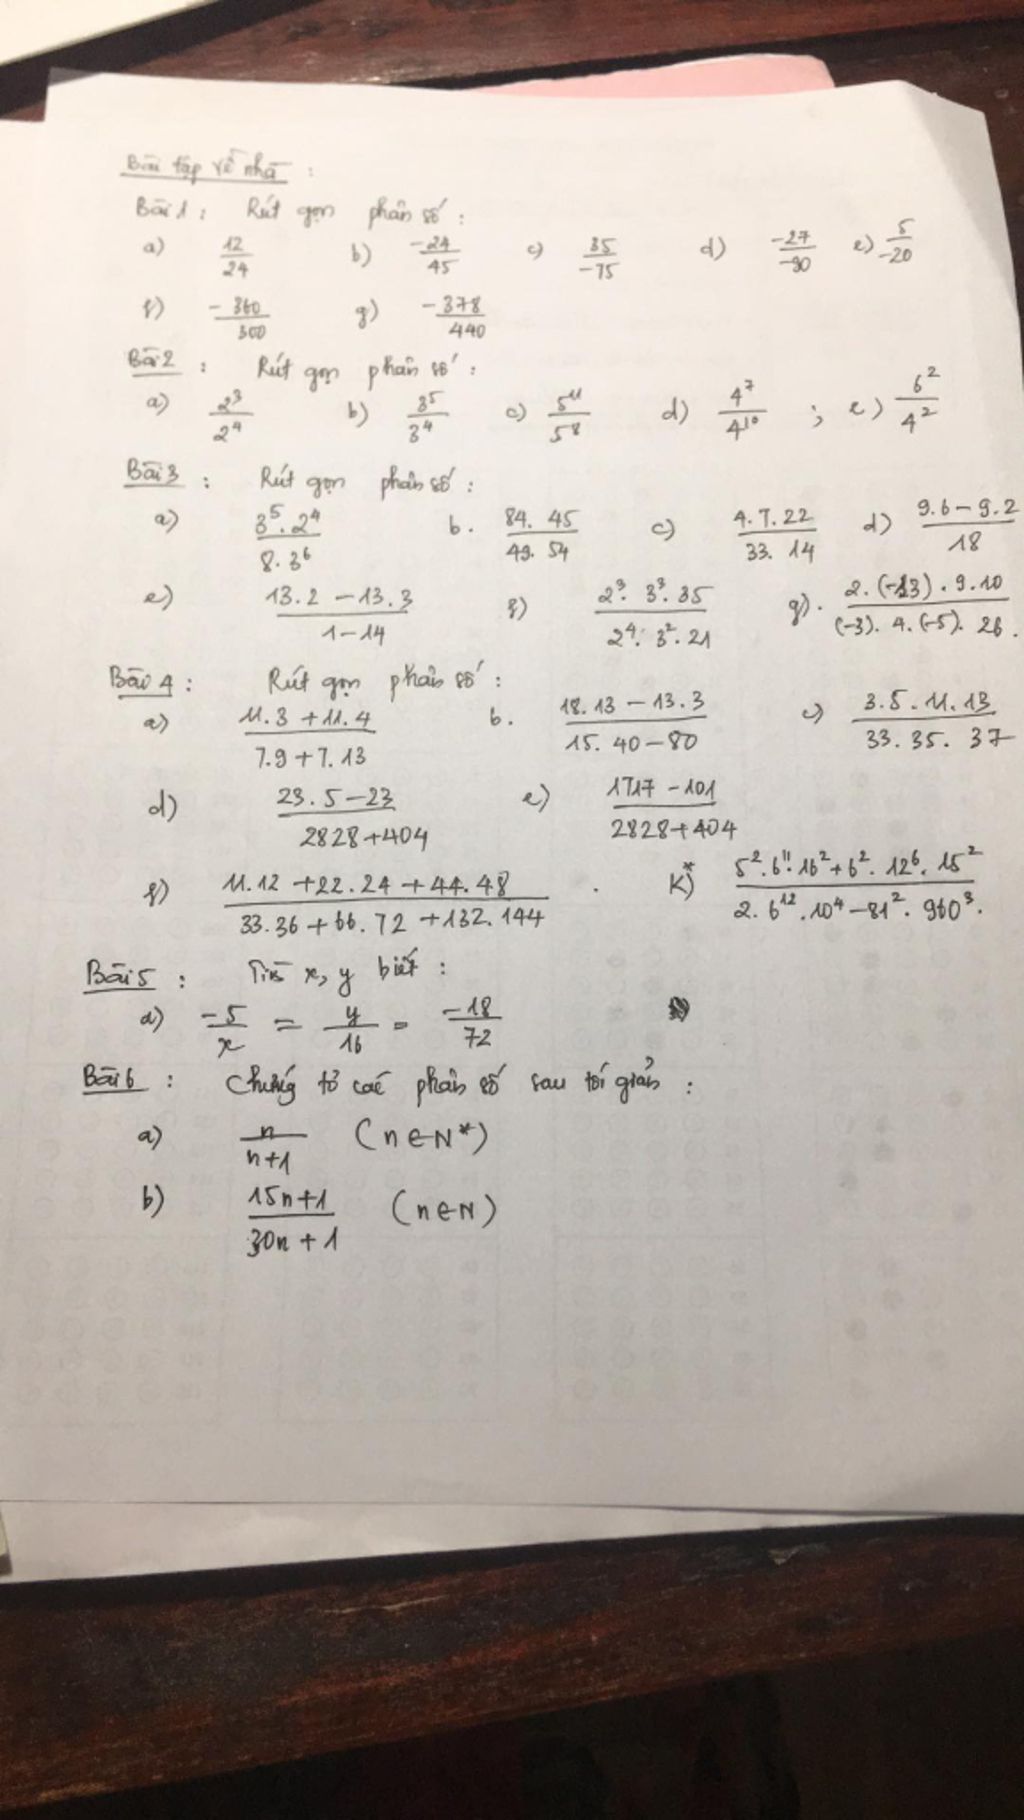 Bài tập về nhà :
Bài 1 : Rút gọn phân số :
a) 12/24 b) -24/45 c) 35/-75 d) -27/-90 e) 5/-20
f) -360/300 g) -378/440
Bài 2 : Rút gọn phân số :
a) 2³/2⁴ b) 3⁵/3⁴ c) 5¹¹/5⁸ d) 4⁷/4¹⁰ ; e) 6²/4²
Bài 3 : Rút gọn phân số :
a) 3⁵.2⁴/8.3⁶ b. 84.45/49.54 c) 4.7.22/33.14 d) 9.6-9.2/18
e) 13.2-13.3/1-14 f) 2³.3³.35/2⁴.3².21 g). 2.(-13).9.10/(-3).4.(-5).26.
Bài 4 : Rút gọn phân số :
a) 11.3+11.4/7.9+7.13 b. 18.13-13.3/15.40-80 c) 3.5.11.13/33.35.37
d) 23.5-23/2828+404 e) 1717-101/2828+404
f) 11.12+22.24+44.48/33.36+66.72+132.144 . K*) 5².6¹¹.16²+6².12⁶.15²/2.6¹².10⁴-81².960³.
Bài 5 : Tìm x, y biết :
a) -5/x = y/16 = -18/72
Bài 6 : Chứng tỏ các phân số sau tối giản :
a) n/n+1 (n∈N*)
b) 15n+1/30n+1 (n∈N)